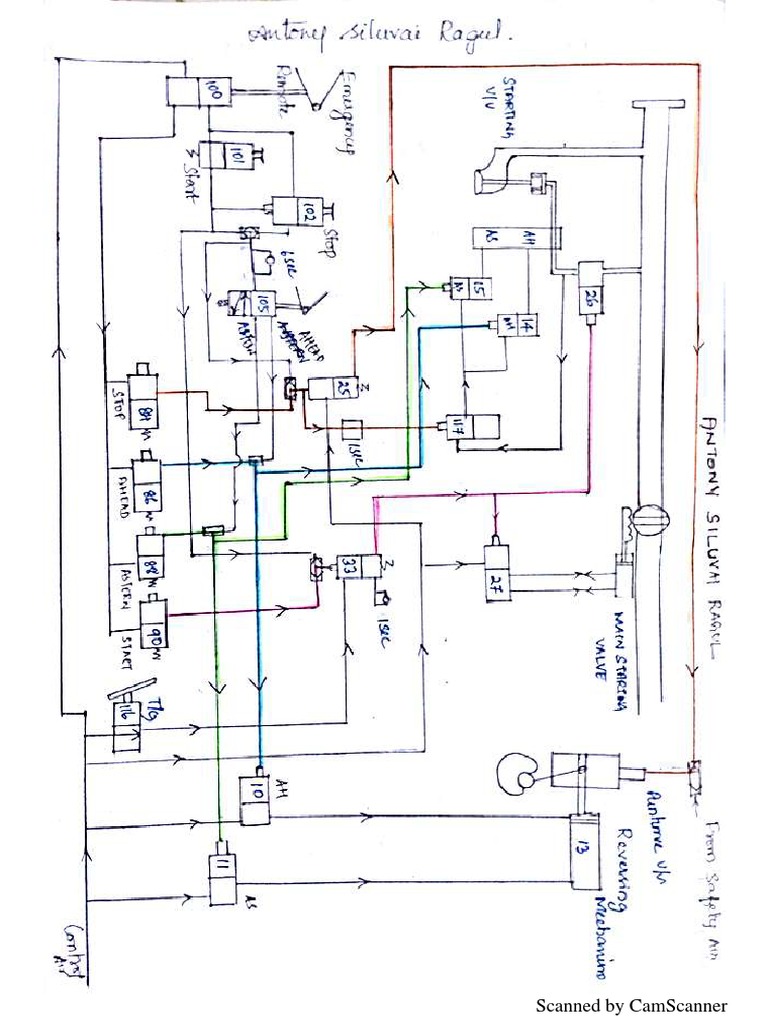 Antony Siluvai Ragul.
Remote
Emergency
100
101
3
Start
102
Stop
6 sec
105
ASTERN
AHEAD
STARTING
V/V
AS
AH
15
14
26
25
3
117
1 sec
STOP
84
AHEAD
86
ASTERN
88
START
90
33
3
1 sec
27
MAIN STARTING
VALVE
ANTONY SILUVAI RAGUL
T/G
116
AH
10
11
AS
13
Reversing
Mechanism
Puncture V/V
From Safety Air
Control
Air
Scanned by CamScanner